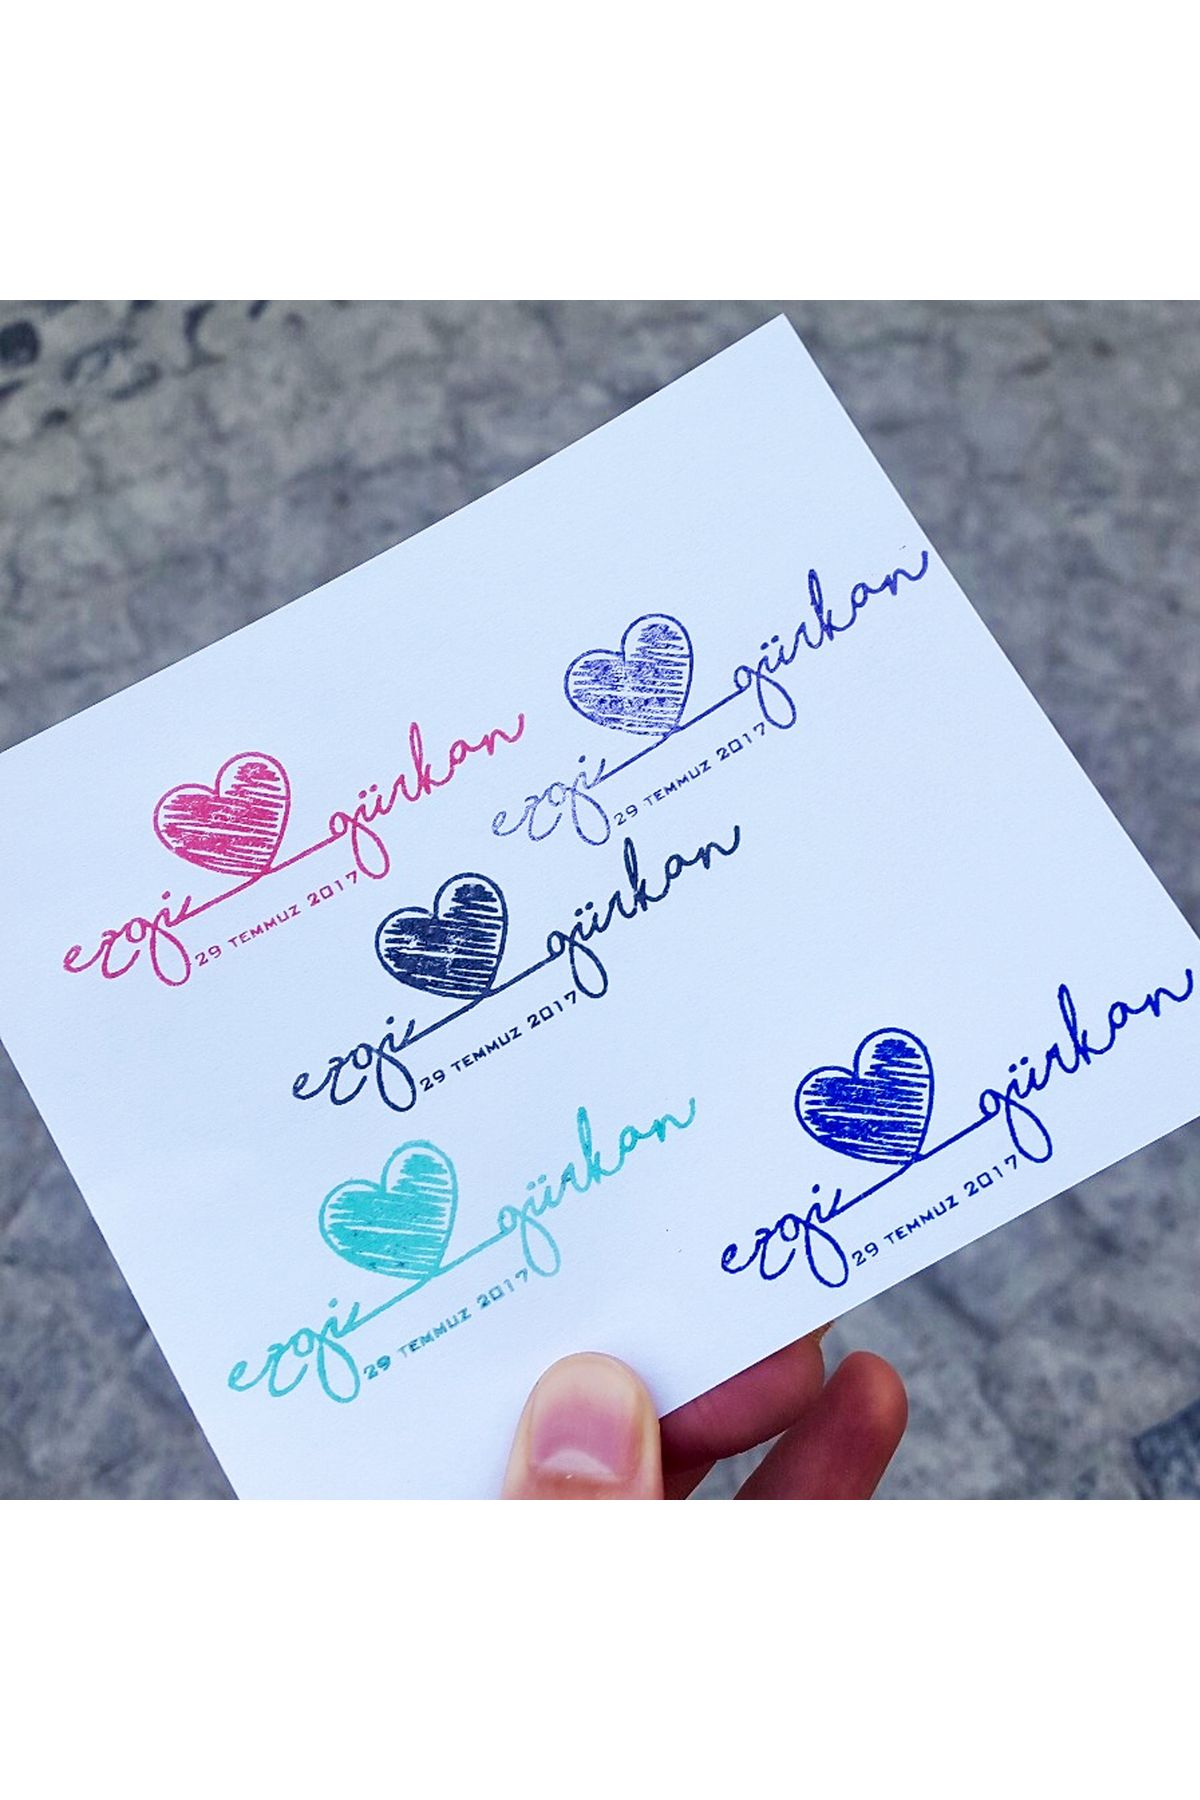 ezgi gürkan
29 TEMMUZ 2017
ezgi gürkan
29 TEMMUZ 2017
ezgi gürkan
29 TEMMUZ 2017
ezgi gürkan
29 TEMMUZ 2017
ezgi gürkan
29 TEMMUZ 2017